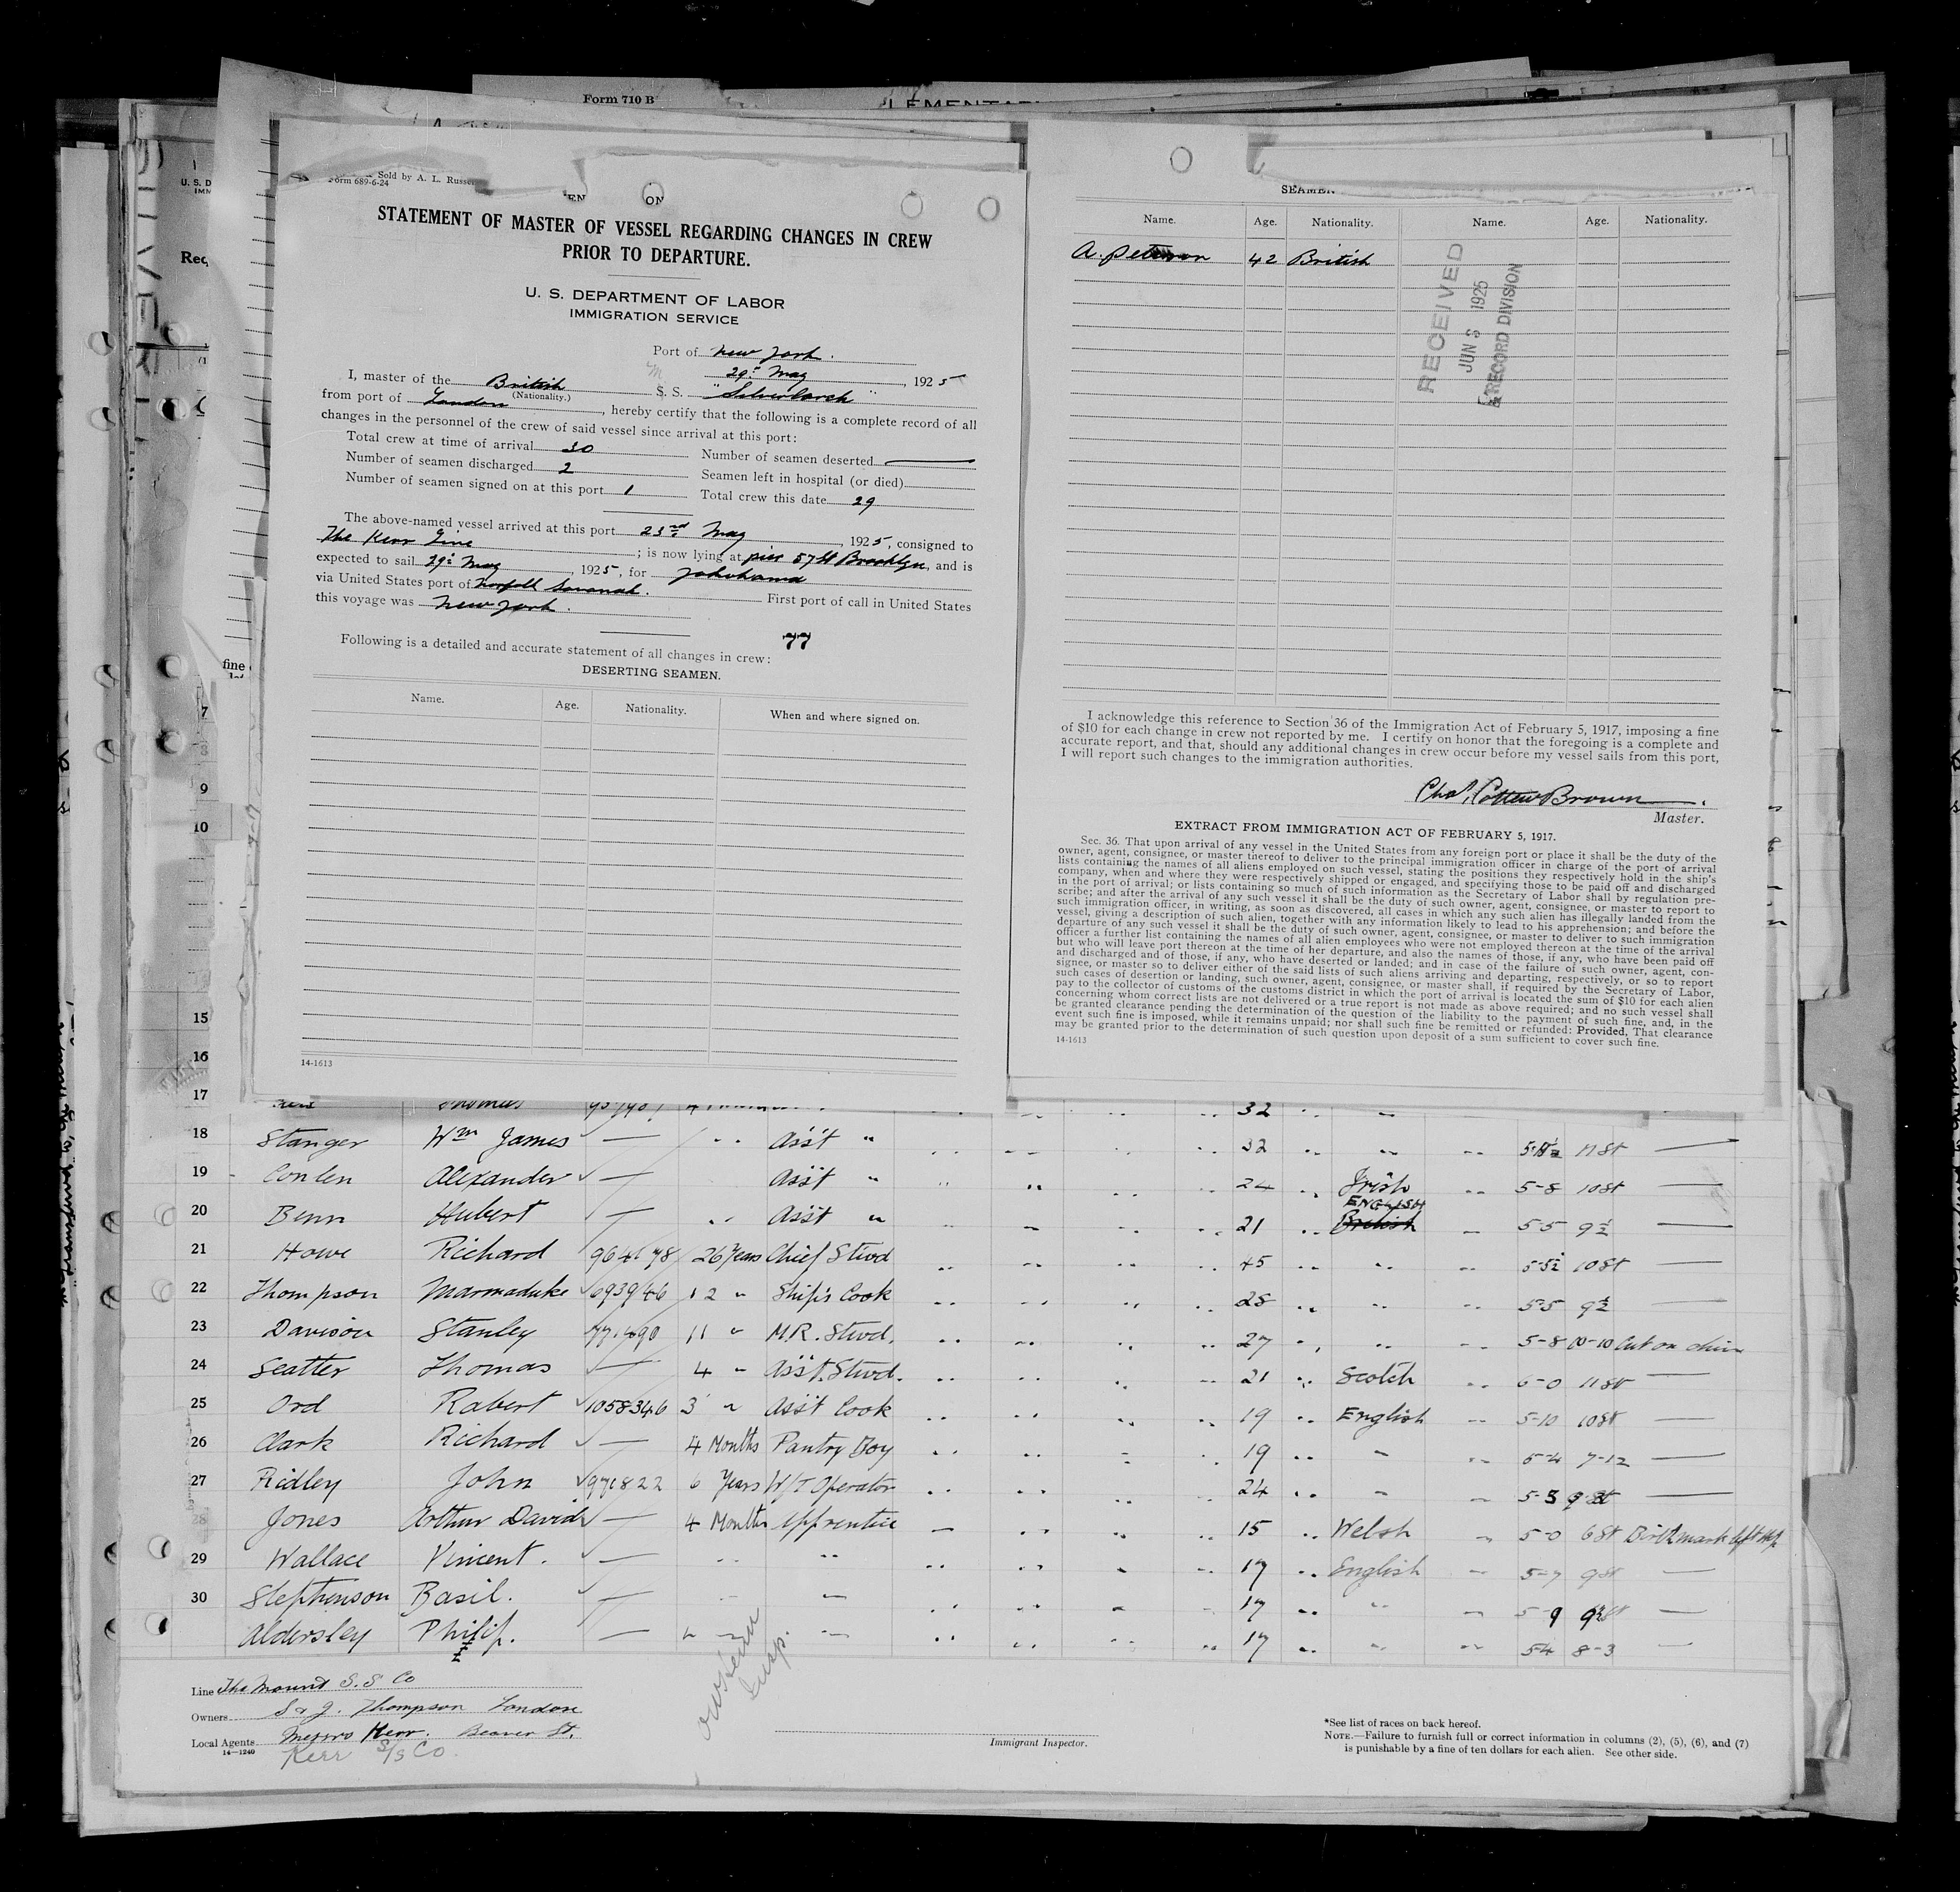 Form 710 B
Sold by A. L. Russe
Form 689-6-24
STATEMENT OF MASTER OF VESSEL REGARDING CHANGES IN CREW
PRIOR TO DEPARTURE.
U. S. DEPARTMENT OF LABOR
IMMIGRATION SERVICE
Port of New York.
29th May, 1925
I, master of the British S. S. "Silverlarch"
(Nationality.)
from port of London, hereby certify that the following is a complete record of all
changes in the personnel of the crew of said vessel since arrival at this port:
Total crew at time of arrival 30
Number of seamen deserted
Number of seamen discharged 2
Seamen left in hospital (or died)
Number of seamen signed on at this port 1
Total crew this date 29
The above-named vessel arrived at this port 23rd May, 1925, consigned to
The Kerr Line; is now lying at pier 57 St Brooklyn, and is
expected to sail 29th May, 1925, for Yokohama
via United States port of Norfolk Savanah. First port of call in United States
this voyage was New York.
77
Following is a detailed and accurate statement of all changes in crew:
DESERTING SEAMEN.
Name. Age. Nationality. When and where signed on.
14-1613
SEAMEN
Name. Age. Nationality. Name. Age. Nationality.
A. Peterson 42 British
RECEIVED
JUN 3 1925
RECORD DIVISION
I acknowledge this reference to Section 36 of the Immigration Act of February 5, 1917, imposing a fine
of $10 for each change in crew not reported by me. I certify on honor that the foregoing is a complete and
accurate report, and that, should any additional changes in crew occur before my vessel sails from this port,
I will report such changes to the immigration authorities.
Chas. Cottew Brown
Master.
EXTRACT FROM IMMIGRATION ACT OF FEBRUARY 5, 1917.
Sec. 36. That upon arrival of any vessel in the United States from any foreign port or place it shall be the duty of the
owner, agent, consignee, or master thereof to deliver to the principal immigration officer in charge of the port of arrival
lists containing the names of all aliens employed on such vessel, stating the positions they respectively hold in the ship's
company, when and where they were respectively shipped or engaged, and specifying those to be paid off and discharged
in the port of arrival; or lists containing so much of such information as the Secretary of Labor shall by regulation pre-
scribe; and after the arrival of any such vessel it shall be the duty of such owner, agent, consignee, or master to report to
such immigration officer, in writing, as soon as discovered, all cases in which any such alien has illegally landed from the
vessel, giving a description of such alien, together with any information likely to lead to his apprehension; and before the
departure of any such vessel it shall be the duty of such owner, agent, consignee, or master to deliver to such immigration
officer a further list containing the names of all alien employees who were not employed thereon at the time of the arrival
but who will leave port thereon at the time of her departure, and also the names of those, if any, who have been paid off
and discharged and of those, if any, who have deserted or landed; and in case of the failure of such owner, agent, con-
signee, or master so to deliver either of the said lists of such aliens arriving and departing, respectively, or so to report
such cases of desertion or landing, such owner, agent, consignee, or master shall, if required by the Secretary of Labor,
pay to the collector of customs of the customs district in which the port of arrival is located the sum of $10 for each alien
concerning whom correct lists are not delivered or a true report is not made as above required; and no such vessel shall
be granted clearance pending the determination of the question of the liability to the payment of such fine, and, in the
event such fine is imposed, while it remains unpaid; nor shall such fine be remitted or refunded: Provided, That clearance
may be granted prior to the determination of such question upon deposit of a sum sufficient to cover such fine.
14-1613
7
8
9
10
15
16
17 Thomas 32
18 Stanger Wm James — Ass't " 32 11 St —
19 Conlen Alexander — Ass't " 24 Irish 5-8 10 St —
20 Benn Hubert — Ass't " 21 ENGLISH British 5-5 9½ —
21 Howe Richard 964178 26 Years Chief Stwd 45 5-5½ 10 St —
22 Thompson Marmaduke 693946 12 " Ship's Cook 28 5-5 9½ —
23 Davison Stanley 771490 11 " M.R. Stwd. 27 5-8 10-10 Cut on chin
24 Seatter Thomas — 4 " Ass't. Stwd. 21 Scotch 6-0 11 St —
25 Ord Robert 1058346 3 " Ass't Cook 19 English 5-10 10 St —
26 Clark Richard — 4 Months Pantry Boy 19 " 5-4 7-12 —
27 Ridley John 971822 6 Years W/T Operator 24 " 5-5 9 St —
28 Jones Arthur David — 4 Months Apprentice 15 Welsh 5-0 6 St Birthmark left hip
29 Wallace Vincent. — " " 17 English 5-7 9 St —
30 Stephenson Basil. — " 17 " 5-9 9½ St —
Aldersley Philip. — " " 17 " 5-4 8-3 —
Line The Mount S.S Co
Owners S & J. Thompson London
Local Agents Messrs Kerr. Beaver St.
14-1240
Kerr S/S Co.
Insp.
Immigrant Inspector.
*See list of races on back hereof.
NOTE.—Failure to furnish full or correct information in columns (2), (5), (6), and (7)
is punishable by a fine of ten dollars for each alien. See other side.